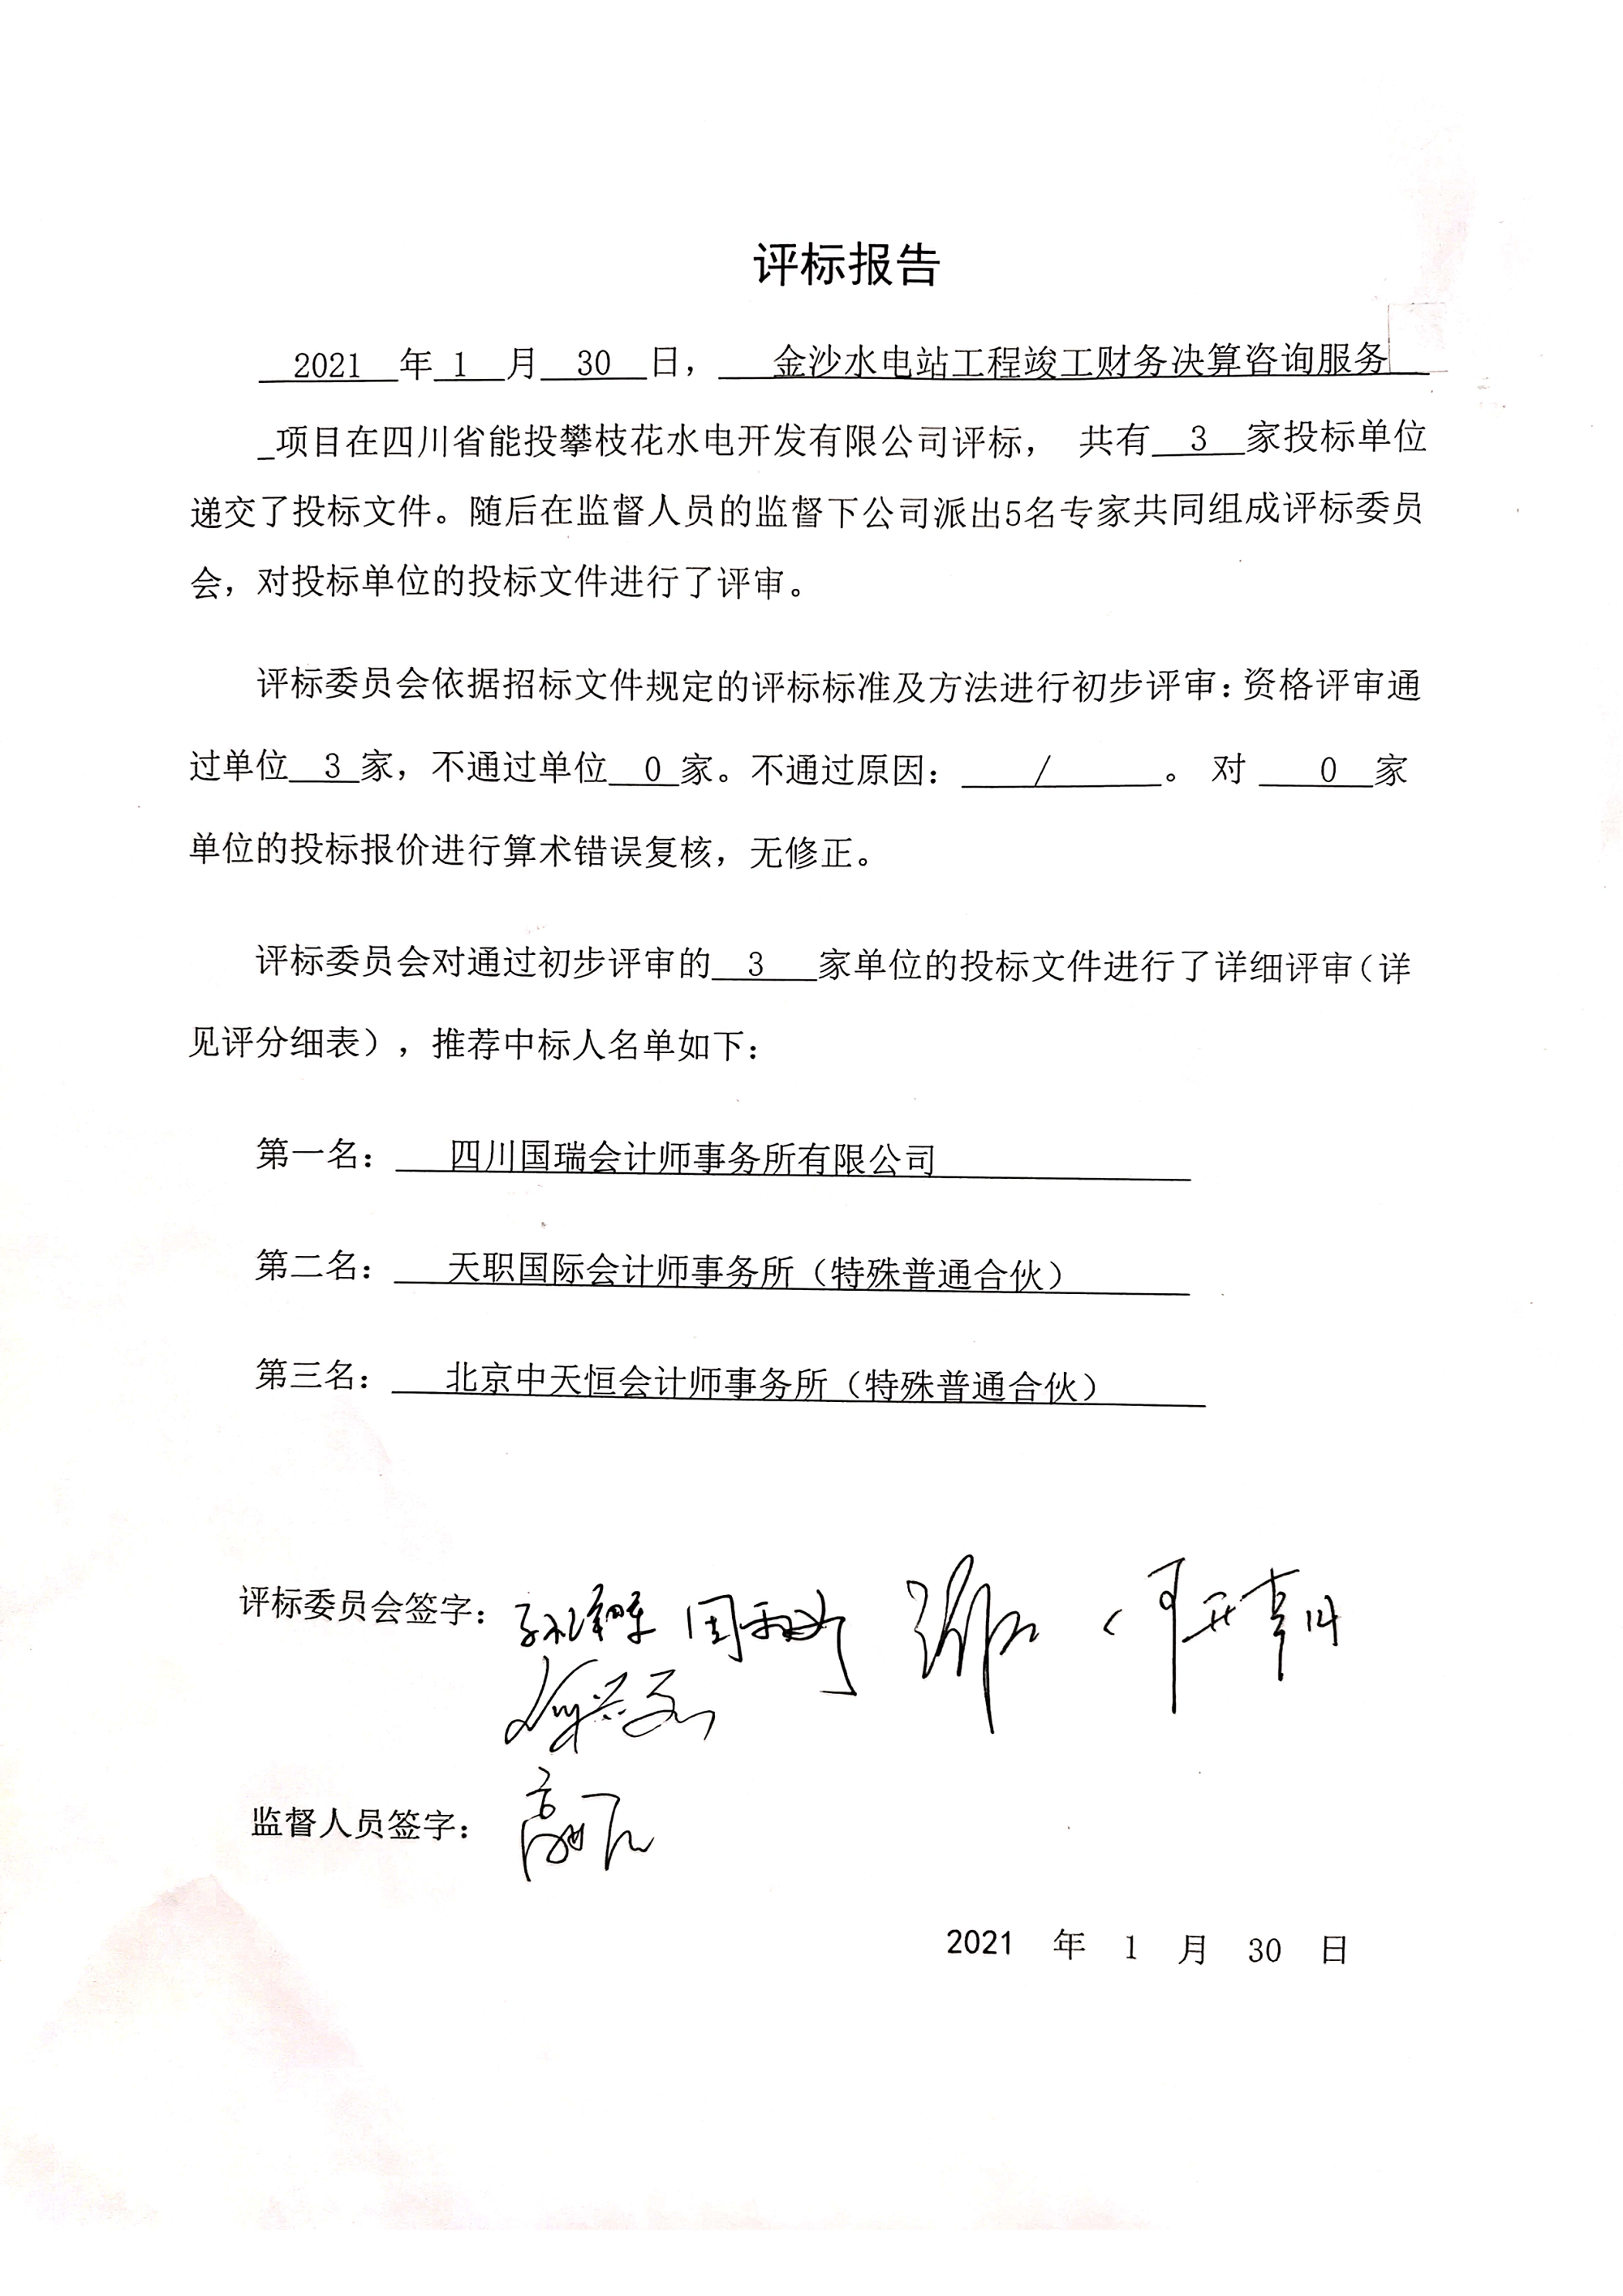 评标报告
2021 年 1 月 30 日， 金沙水电站工程竣工财务决算咨询服务
项目在四川省能投攀枝花水电开发有限公司评标， 共有 3 家投标单位
递交了投标文件。随后在监督人员的监督下公司派出5名专家共同组成评标委员
会，对投标单位的投标文件进行了评审。
评标委员会依据招标文件规定的评标标准及方法进行初步评审：资格评审通
过单位 3 家，不通过单位 0 家。不通过原因： / 。 对 0 家
单位的投标报价进行算术错误复核，无修正。
评标委员会对通过初步评审的 3 家单位的投标文件进行了详细评审（详
见评分细表），推荐中标人名单如下：
第一名： 四川国瑞会计师事务所有限公司
第二名： 天职国际会计师事务所（特殊普通合伙）
第三名： 北京中天恒会计师事务所（特殊普通合伙）
评标委员会签字：
监督人员签字：
2021 年 1 月 30 日